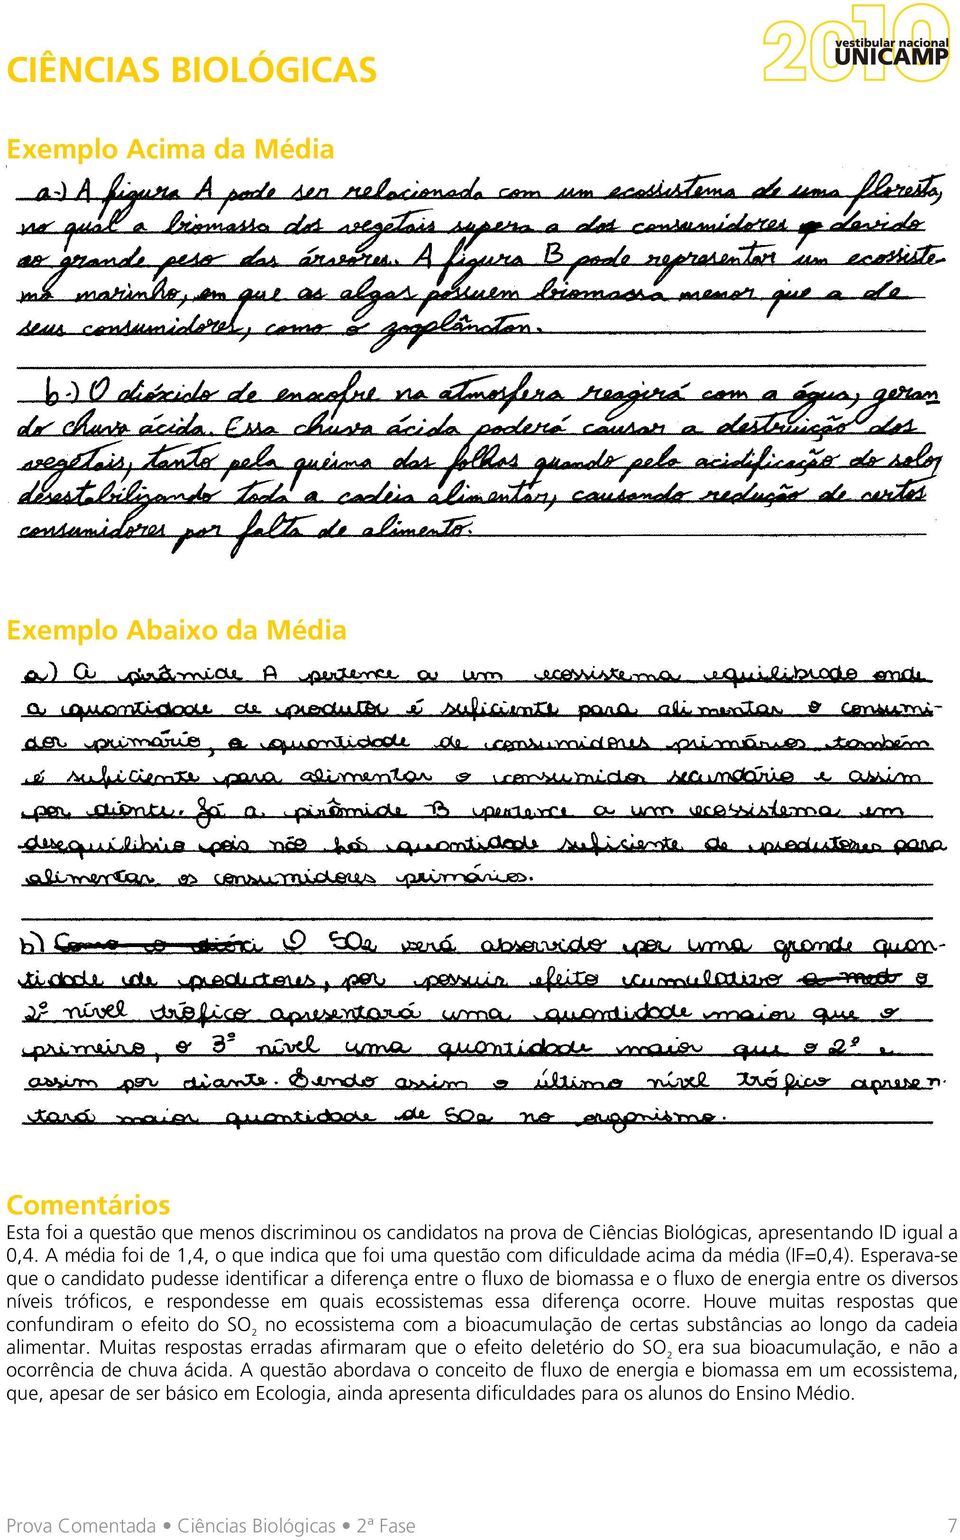 CIÊNCIAS BIOLÓGICAS
2010
vestibular nacional
UNICAMP
Exemplo Acima da Média
a-) A figura A pode ser relacionada com um ecossistema de uma floresta,
no qual a biomassa dos vegetais supera a dos consumidores devido
ao grande peso das árvores. A figura B pode representar um ecossiste-
ma marinho, em que as algas possuem biomassa menor que a de
seus consumidores, como o zooplâncton.
b-) O dióxido de enxofre na atmosfera reagirá com a água, geran
do chuva ácida. Essa chuva ácida poderá causar a destruição dos
vegetais, tanto pela queima das folhas quando pela acidificação do solo,
desestabilizando toda a cadeia alimentar, causando redução de certos
consumidores por falta de alimento.
Exemplo Abaixo da Média
a) A pirâmide A pertence a um ecossistema equilibrado onde
a quantidade de produtor é suficiente para alimentar o consumi-
dor primário, a quantidade de consumidores primários também
é suficiente para alimentar o consumidor secundário e assim
por diante. Já a pirâmide B pertence a um ecossistema em
desequilíbrio pois não há quantidade suficiente de produtores para
alimentar os consumidores primários.
b) Como o dióxi O SO2 será absorvido por uma grande quan-
tidade de productores, por possuir efeito cumulativo a med o
2º nível trófico apresentará uma quantidade maior que o
primeiro, o 3º nível uma quantidade maior que o 2º e
assim por diante. Sendo assim o último nível trófico apresen-
tará maior quantidade de SO2 no organismo.
Comentários
Esta foi a questão que menos discriminou os candidatos na prova de Ciências Biológicas, apresentando ID igual a
0,4. A média foi de 1,4, o que indica que foi uma questão com dificuldade acima da média (IF=0,4). Esperava-se
que o candidato pudesse identificar a diferença entre o fluxo de biomassa e o fluxo de energia entre os diversos
níveis tróficos, e respondesse em quais ecossistemas essa diferença ocorre. Houve muitas respostas que
confundiram o efeito do SO2 no ecossistema com a bioacumulação de certas substâncias ao longo da cadeia
alimentar. Muitas respostas erradas afirmaram que o efeito deletério do SO2 era sua bioacumulação, e não a
ocorrência de chuva ácida. A questão abordava o conceito de fluxo de energia e biomassa em um ecossistema,
que, apesar de ser básico em Ecologia, ainda apresenta dificuldades para os alunos do Ensino Médio.
Prova Comentada • Ciências Biológicas • 2ª Fase 7